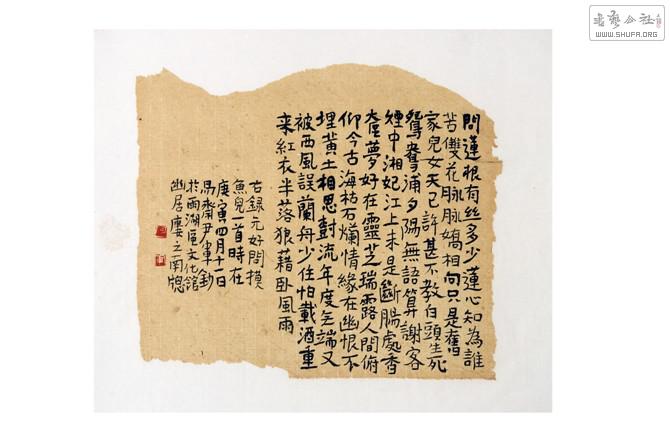 問蓮根有丝多少蓮心知為誰
苦雙花脉脉嬌相向只是舊
家兒女天已許甚不教白頭生死
鴛鴦浦夕陽無語算謝客
煙中湘妃江上未是斷腸處香
奩夢好在靈芝瑞露人間俯
仰今古海枯石爛情緣在幽恨不
埋黄土相思樹流年度无端又
被西風誤蘭舟少住怕載酒重
来紅衣半落狼藉卧風雨
右録元好問摸
魚兒一首時在
庚寅四月十一日
尹軍
於西湖區文化館
幽居之南牕
書藝公社
WWW.SHUFA.ORG